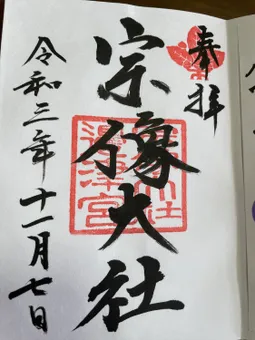 奉拝
宗像大社
邊津宮
令和三年十一月七日